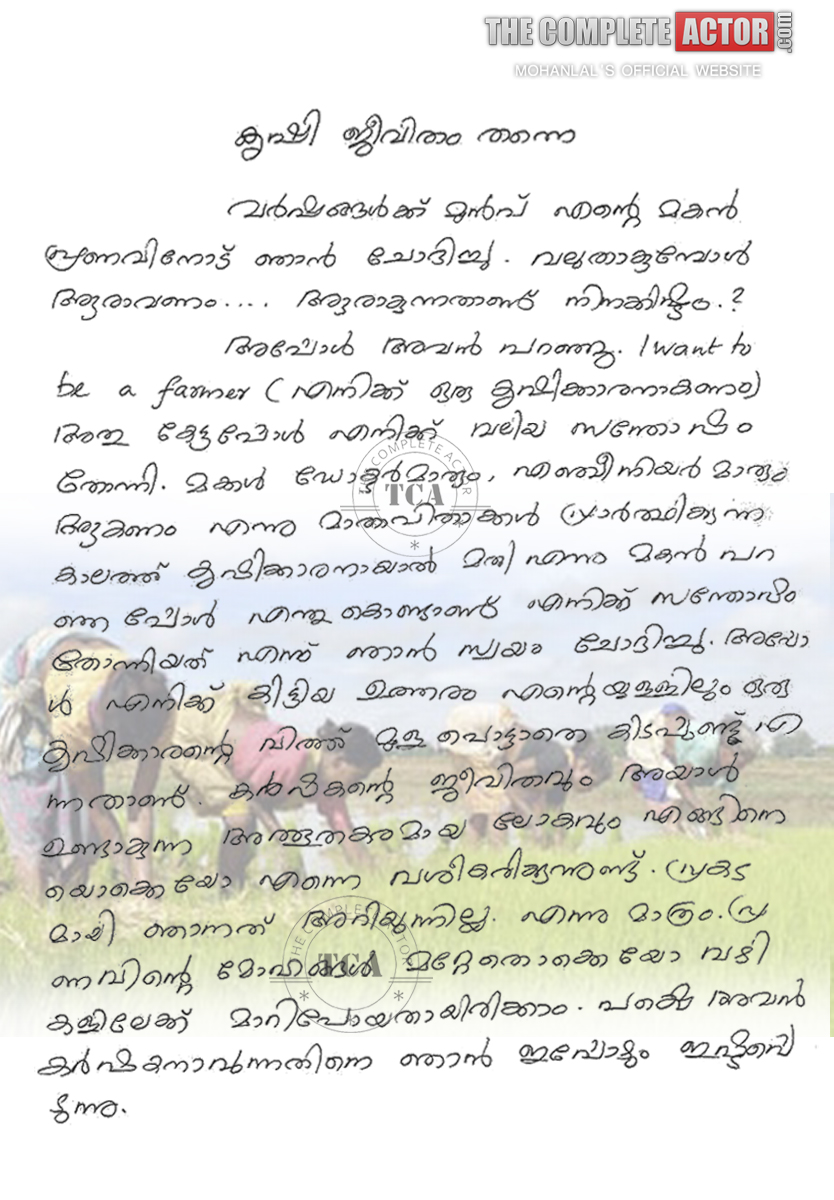 THE COMPLETE ACTOR.com
MOHANLAL'S OFFICIAL WEBSITE
കൃഷി ജീവിതം തന്നെ
വർഷങ്ങൾക്ക് മുൻപ് എന്റെ മകൻ
പ്രണവിനോട് ഞാൻ ചോദിച്ചു. വലുതാകുമ്പോൾ
ആരാവണം.... ആരാകുന്നതാണ് നിനക്കിഷ്ടം.?
അപ്പോൾ അവൻ പറഞ്ഞു. I want to
be a farmer (എനിക്ക് ഒരു കൃഷിക്കാരനാകണം)
അതു കേട്ടപ്പോൾ എനിക്ക് വലിയ സന്തോഷം
തോന്നി. മക്കൾ ഡോക്ടർമാരും, എഞ്ചിനിയർമാരും
ആകണം എന്നു മാതാപിതാക്കൾ പ്രാർത്ഥിക്കുന്ന
കാലത്ത് കൃഷിക്കാരനായാൽ മതി എന്നു മകൻ പറ
ഞ്ഞപ്പോൾ എന്തുകൊണ്ടാണ് എനിക്ക് സന്തോഷം
തോന്നിയത് എന്ന് ഞാൻ സ്വയം ചോദിച്ചു. അപ്പോ
ൾ എനിക്ക് കിട്ടിയ ഉത്തരം എന്റെയുള്ളിലും ഒരു
കൃഷിക്കാരന്റെ വിത്ത് മുളപൊട്ടാതെ കിടപ്പുണ്ട് എ
ന്നതാണ്. കർഷകന്റെ ജീവിതവും അയാൾ
ഉണ്ടാക്കുന്ന അത്ഭുതകരമായ ലോകവും എങ്ങിനെ
യൊക്കെയോ എന്നെ വശീകരിക്കുന്നുണ്ട്. പ്രകട
മായി ഞാനത് അറിയുന്നില്ല. എന്നു മാത്രം. പ്ര
ണവിന്റെ മോഹങ്ങൾ മറ്റേതൊക്കെയോ വഴി
കളിലേക്ക് മാറിപോയതായിരിക്കാം. പക്ഷെ അവൻ
കർഷകനാവുന്നതിനെ ഞാൻ ഇപ്പോഴും ഇഷ്ടപ്പെ
ടുന്നു.
THE COMPLETE ACTOR
TCA
THE COMPLETE ACTOR
TCA